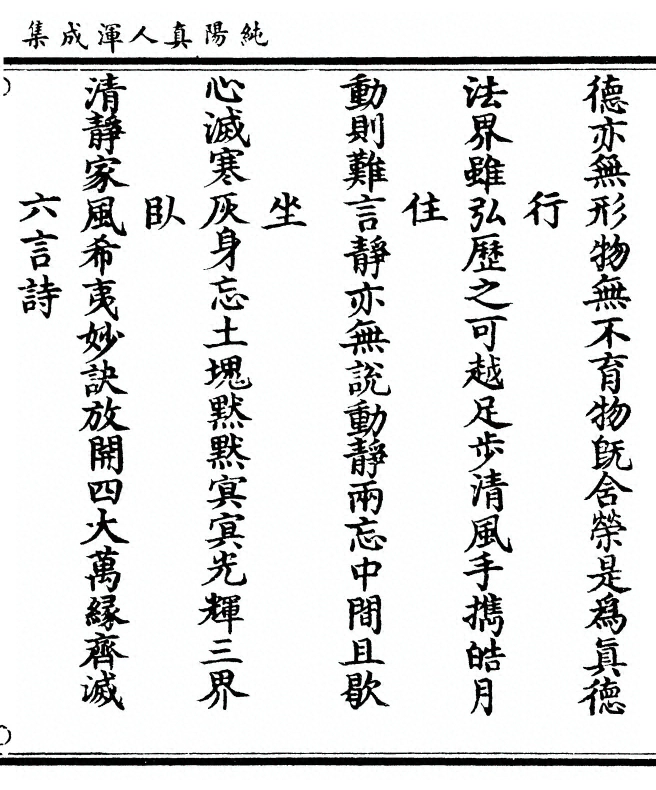 純陽真人渾成集
德亦無形物無不育物旣含榮是爲眞德
行
法界雖弘歷之可越足步清風手擕皓月
住
動則難言靜亦無說動靜兩忘中間且歇
坐
心滅寒灰身忘土塊默默寞寞光輝三界
臥
清靜家風希夷妙訣放開四大萬緣齊滅
六言詩